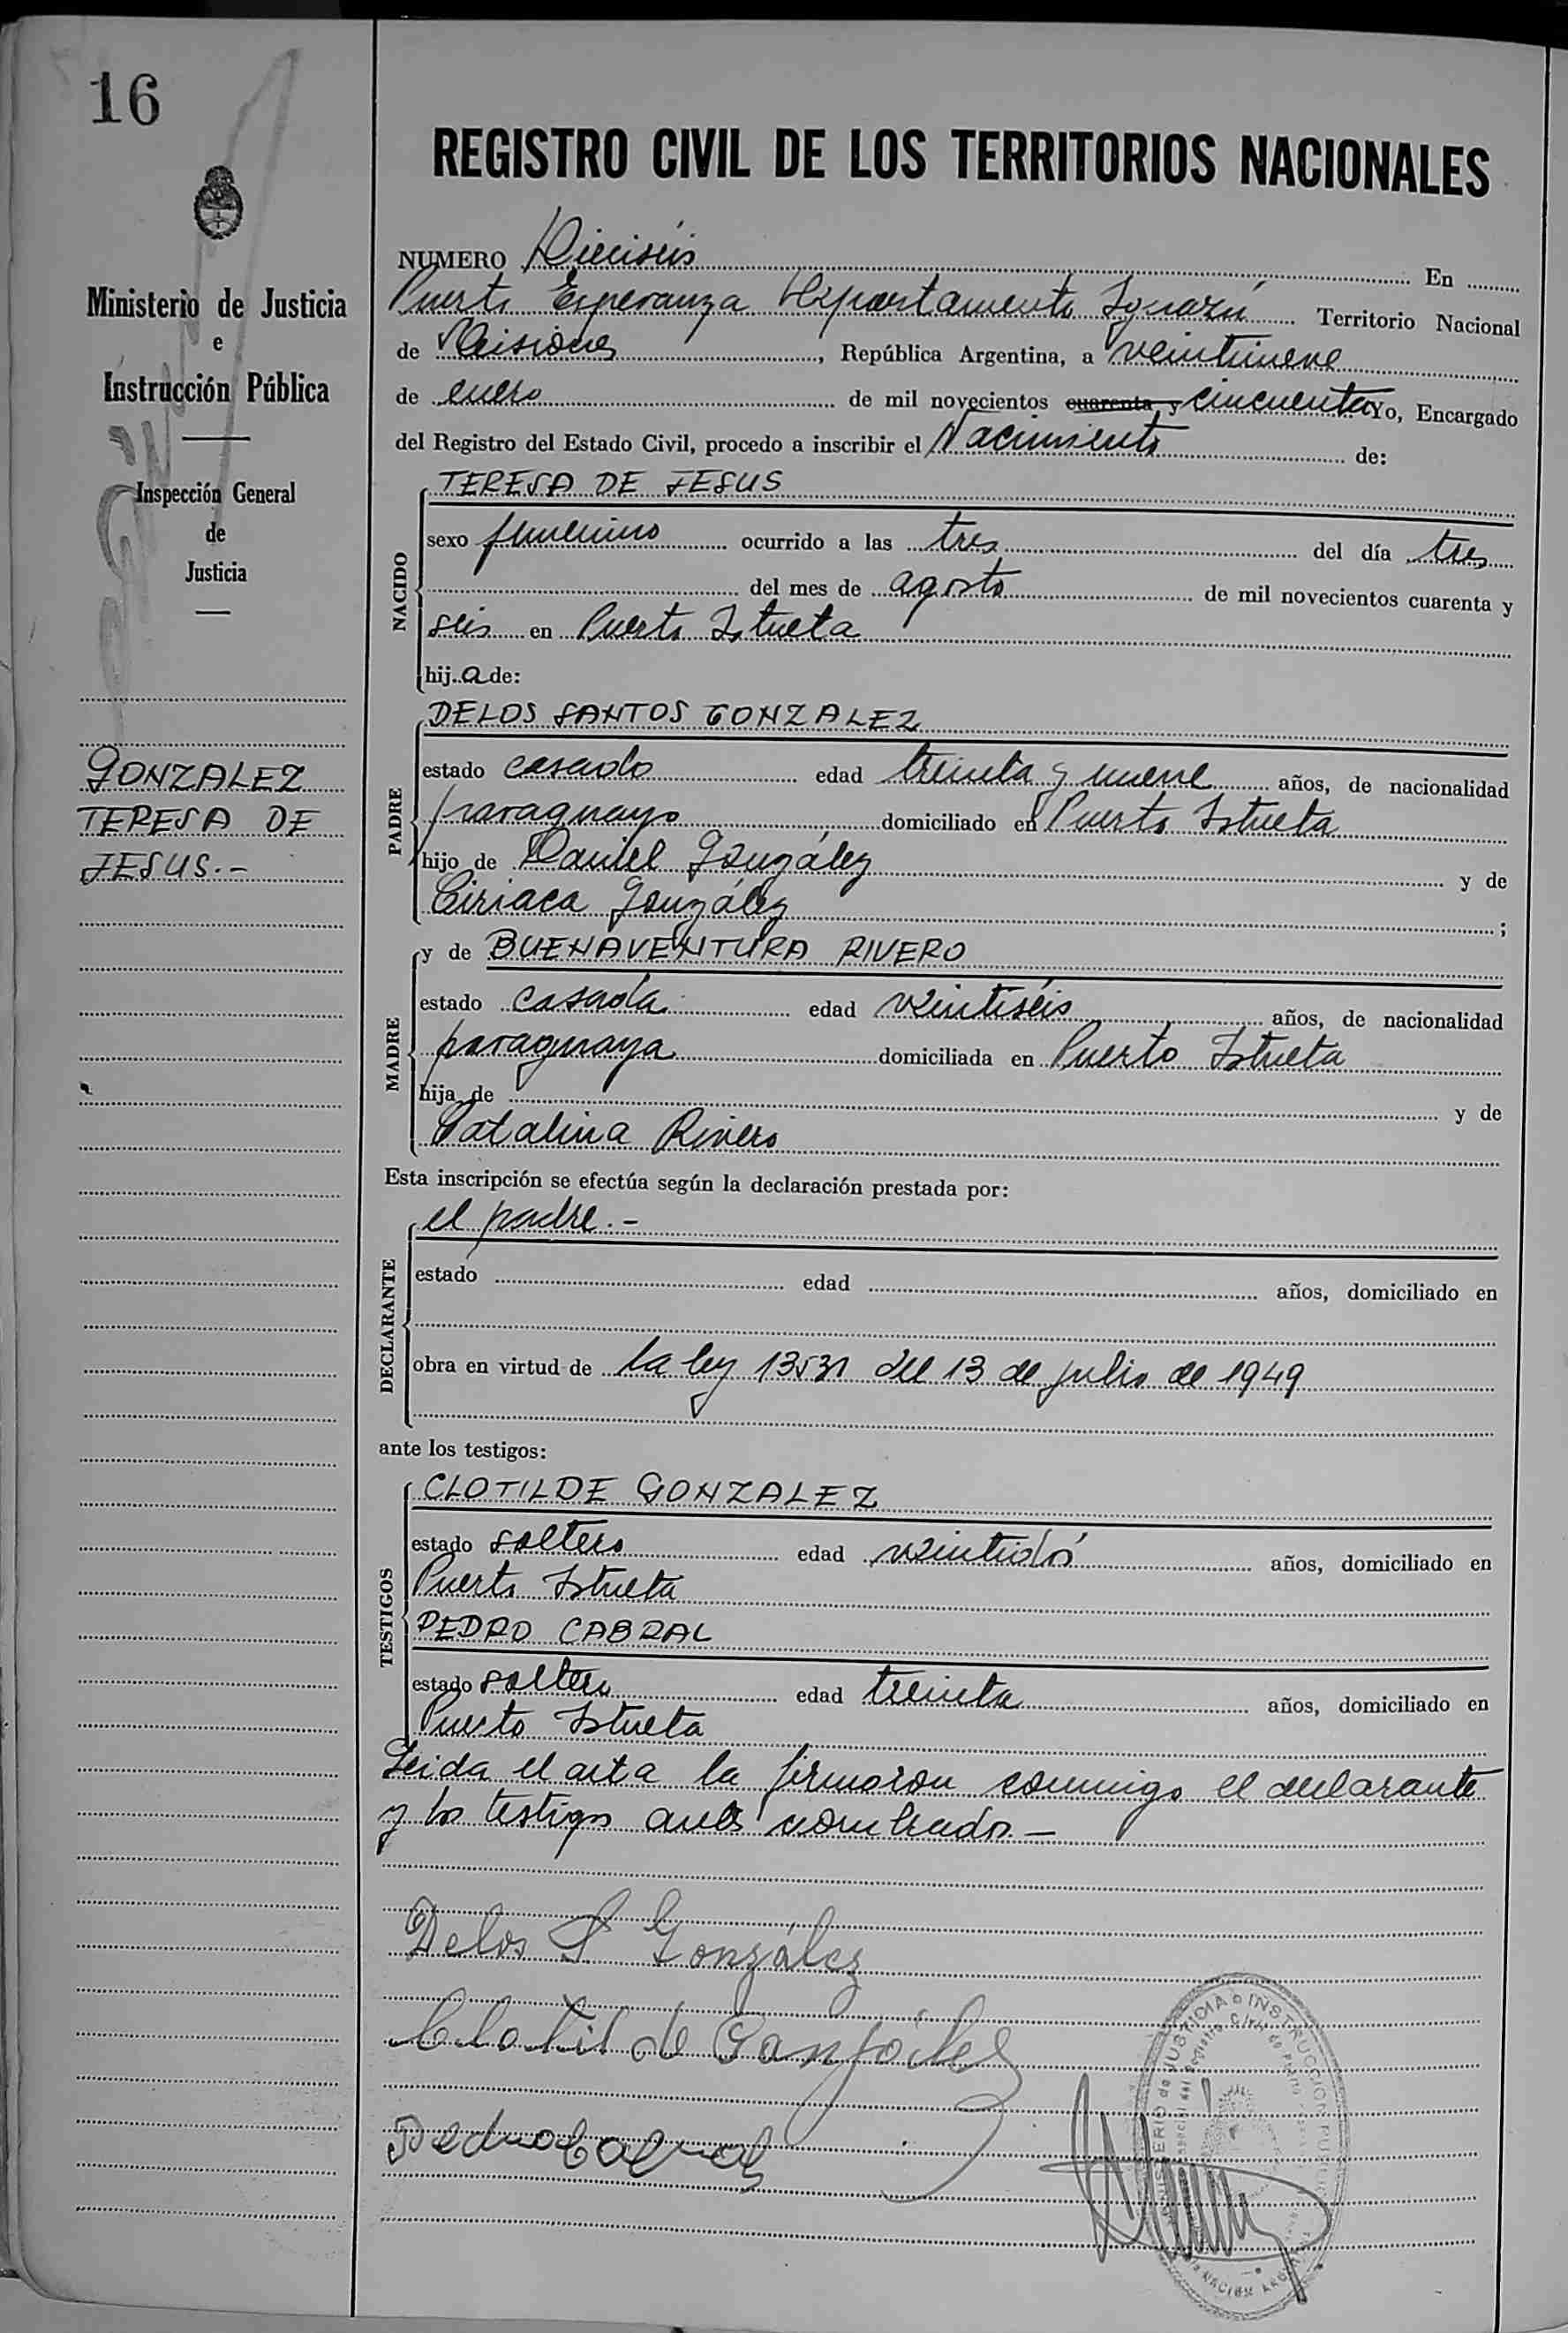 16
Ministerio de Justicia
e
Instrucción Pública
Inspección General
de
Justicia
GONZALEZ
TERESA DE
JESUS.-
REGISTRO CIVIL DE LOS TERRITORIOS NACIONALES
NUMERO Dieciséis En
Puerto Esperanza Departamento Iguazú Territorio Nacional
de Misiones, República Argentina, a veintinueve
de enero de mil novecientos cuarenta y cincuenta Yo, Encargado
del Registro del Estado Civil, procedo a inscribir el Nacimiento de:
NACIDO
TERESA DE JESUS
sexo femenino ocurrido a las tres del día tres
del mes de agosto de mil novecientos cuarenta y
seis en Puerto Istueta
hij a de:
PADRE
DELOS SANTOS GONZALEZ
estado casado edad treinta y nueve años, de nacionalidad
paraguayo domiciliado en Puerto Istueta
hijo de Daniel González y de
Ciriaca González ;
MADRE
y de BUENAVENTURA RIVERO
estado casada edad veintiséis años, de nacionalidad
paraguaya domiciliada en Puerto Istueta
hija de y de
Catalina Rivero
Esta inscripción se efectúa según la declaración prestada por:
DECLARANTE
el padre.-
estado edad años, domiciliado en
obra en virtud de la ley 13531 del 13 de julio de 1949
ante los testigos:
TESTIGOS
CLOTILDE GONZALEZ
estado soltero edad veintidós años, domiciliado en
Puerto Istueta
PEDRO CABRAL
estado soltero edad treinta años, domiciliado en
Puerto Istueta
Leida el acta la firmaron conmigo el declarante
y los testigos antes nombrados.-
Delos S González
Clotilde Gonzalez
Pedro Cabral
MINISTERIO de JUSTICIA e INSTRUCCION PUBLICA